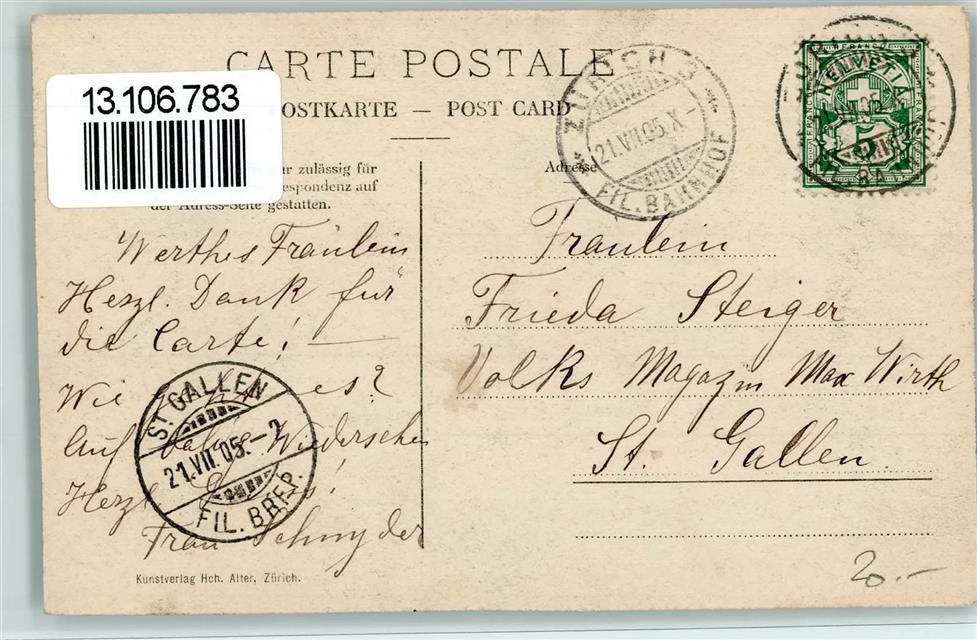 CARTE POSTALE
13.106.783
OSTKARTE — POST CARD
ur zulässig für
espondenz auf
der Adress-Seite gestatten.
Adresse
ZÜRICH 3
21.VII.05.X-
FIL. BAHNHOF
HELVETIA
FRANCO
5
Werthes Fräulein
Herzl. Dank für
die Carte!
Wie geht es?
Auf Wiedersehen
Herzl.
Frau Schnyder
ST GALLEN
21.VII.05.-2
FIL. BRFP.
Fraulein
Frieda Steiger
Volks Magazin Max Wirth
St. Gallen.
Kunstverlag Hch. Alter, Zürich.
20.-